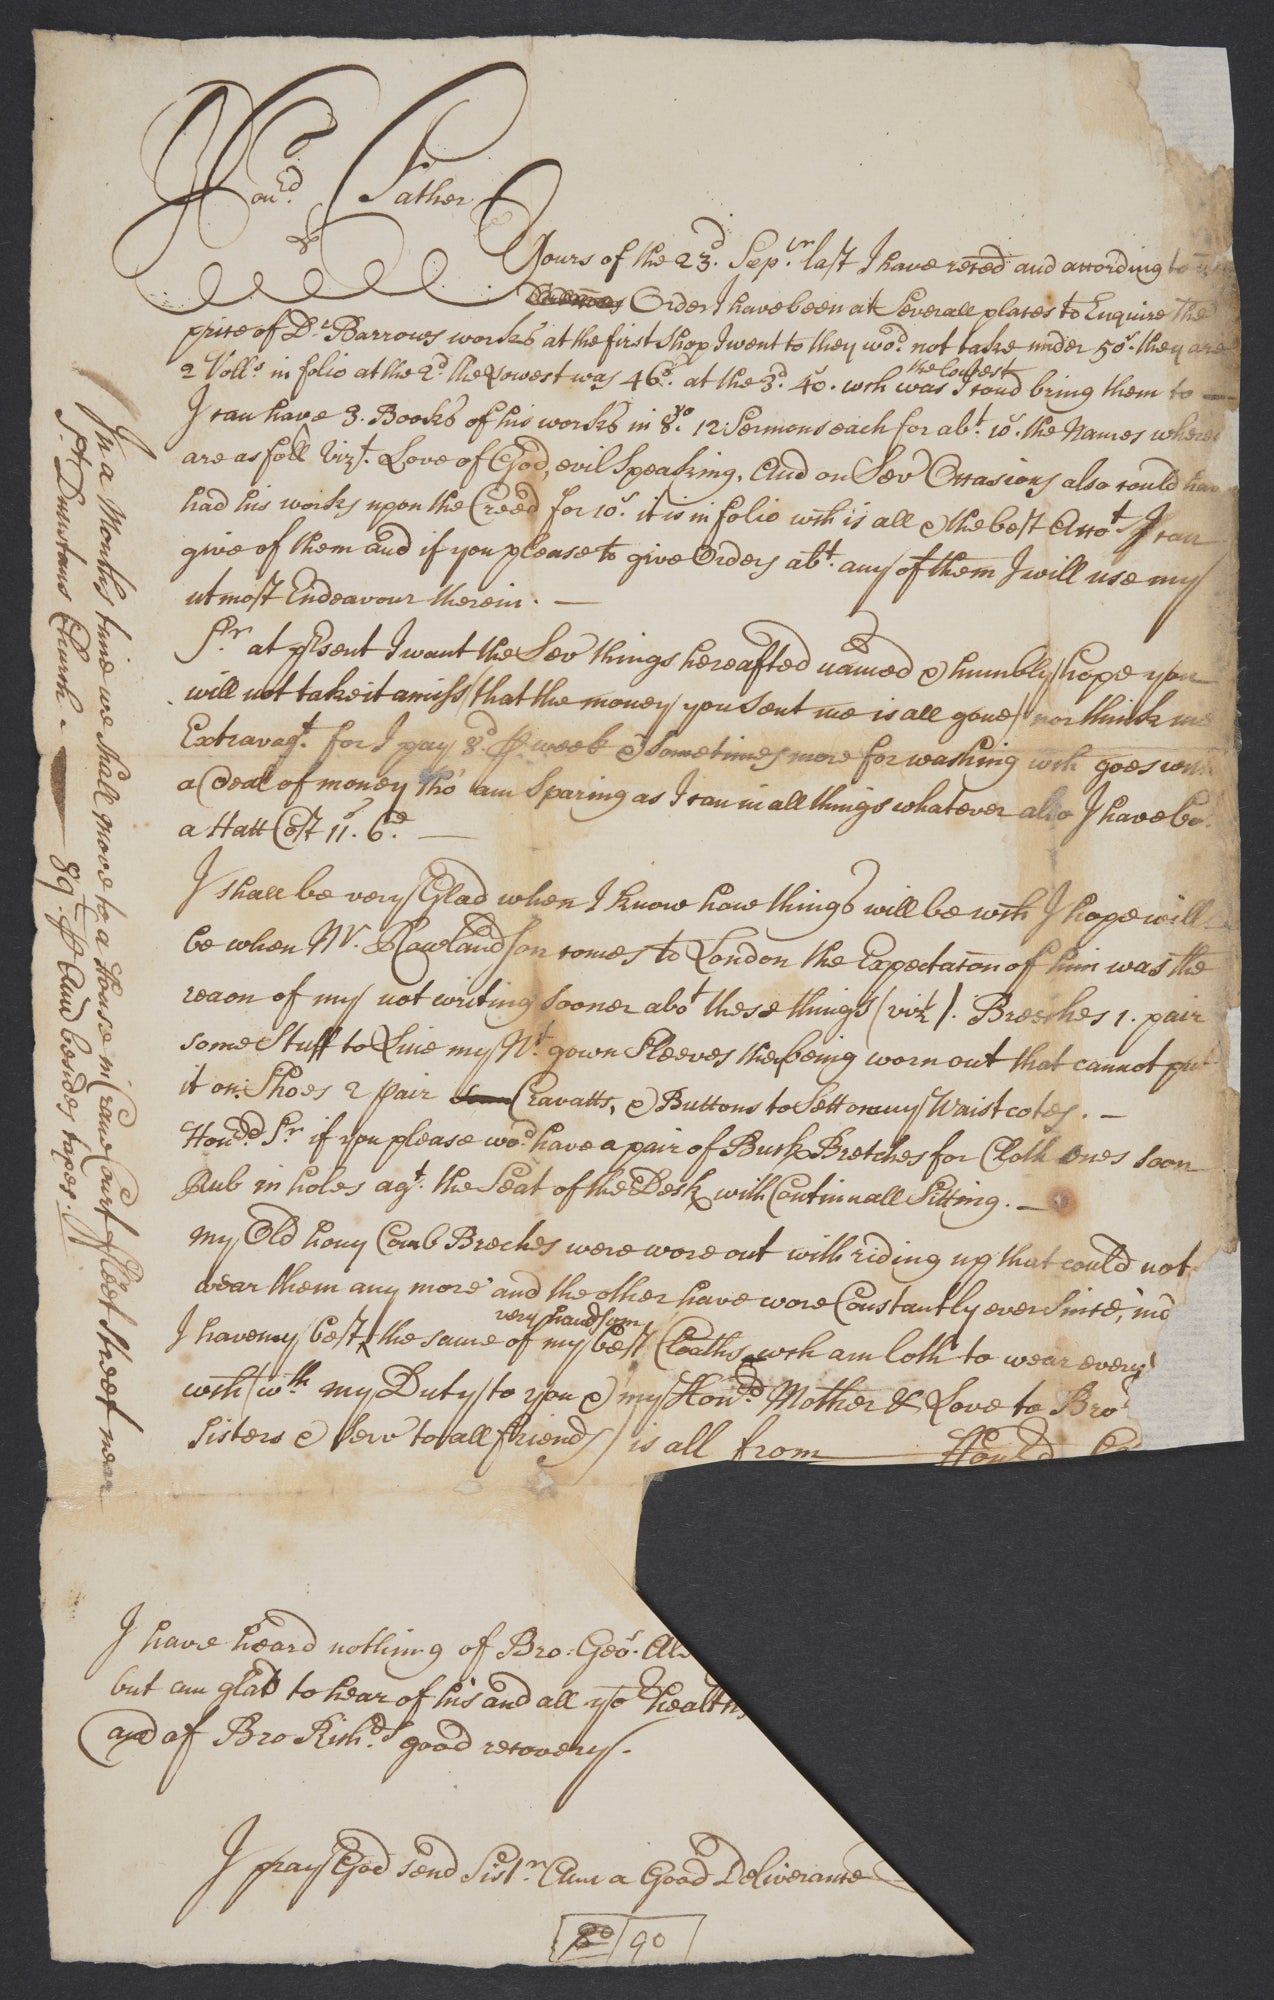 Hon:ed Father
Yours of the 23d. Sepr. last I have reced and according to
Order I have been at Severall places to Enquire the
price of Dr. Barrows works at the first Shop I went to they wod. not take under 50s. they are
2 Volls. in folio at the 2d. the Lowest was 46s. at the 3d. 40. wch was the Lowest I coud bring them to —
I can have 3. Books of his works in 8vo. 12 Sermons each for abt. 10s. the Names whereof
are as foll Vizt. Love of God, evil Speaking, And on Sev Occasions also could hav
had his works upon the Creed for 10s. it is in folio wch is all & the best Acct I can
give of them and if you please to give Orders abt. any of them I will use my
utmost Endeavour therein. —
Sr. at psent I want the Sev things hereafted named & humbly hope you
will not take it amiss (that the money you Sent me is all gone) nor think me
Extravagt. for I pay 8d. p week & Sometimes more for washing wch goes with
a Deal of money tho' am Sparing as I can in all things whatever also I have bo.
a Hatt Cost 11s. 6d. —
I shall be very Glad when I know how things will be wch I hope will
be when Mr. Rowlandson comes to London the Expectacon of him was the
reaon of my not writing sooner abot these things (vizt). Breeches 1. pair
some Stuff to Line my Nt. gown Sleeves the being worn out that cannot put
it on: Shoes 2 pair Cravatts, & Buttons to Sett on my Waistcotes. —
Hond. Sr. if you please wod. have a pair of Buck Bretches for Cloth Ones soon
Rub in holes agt. the Seat of the Desk with Continuall Sitting. —
my Old hony Comb Breches were wore out with riding up that could not
wear them any more and the other have wore Constantly ever Since, ind
I have my best the same of my best very handsom Cloaths wch am loth to wear every
wch (wth my Duty to you & my Hond. Mother & Love to Bros
Sisters & Serv to all friends) is all from Honl'd
I have heard nothing of Bro: Geo:
but am glad to hear of his and all yo health
and of Bro Richds good recovery.
I pray God send Sistr. Ann a Good Deliverance
80 / 90
In a Months time we shall move to a House in Crane Court Fleet Street near
St. Dunstans Church. — 89. p Ann besides taxes.